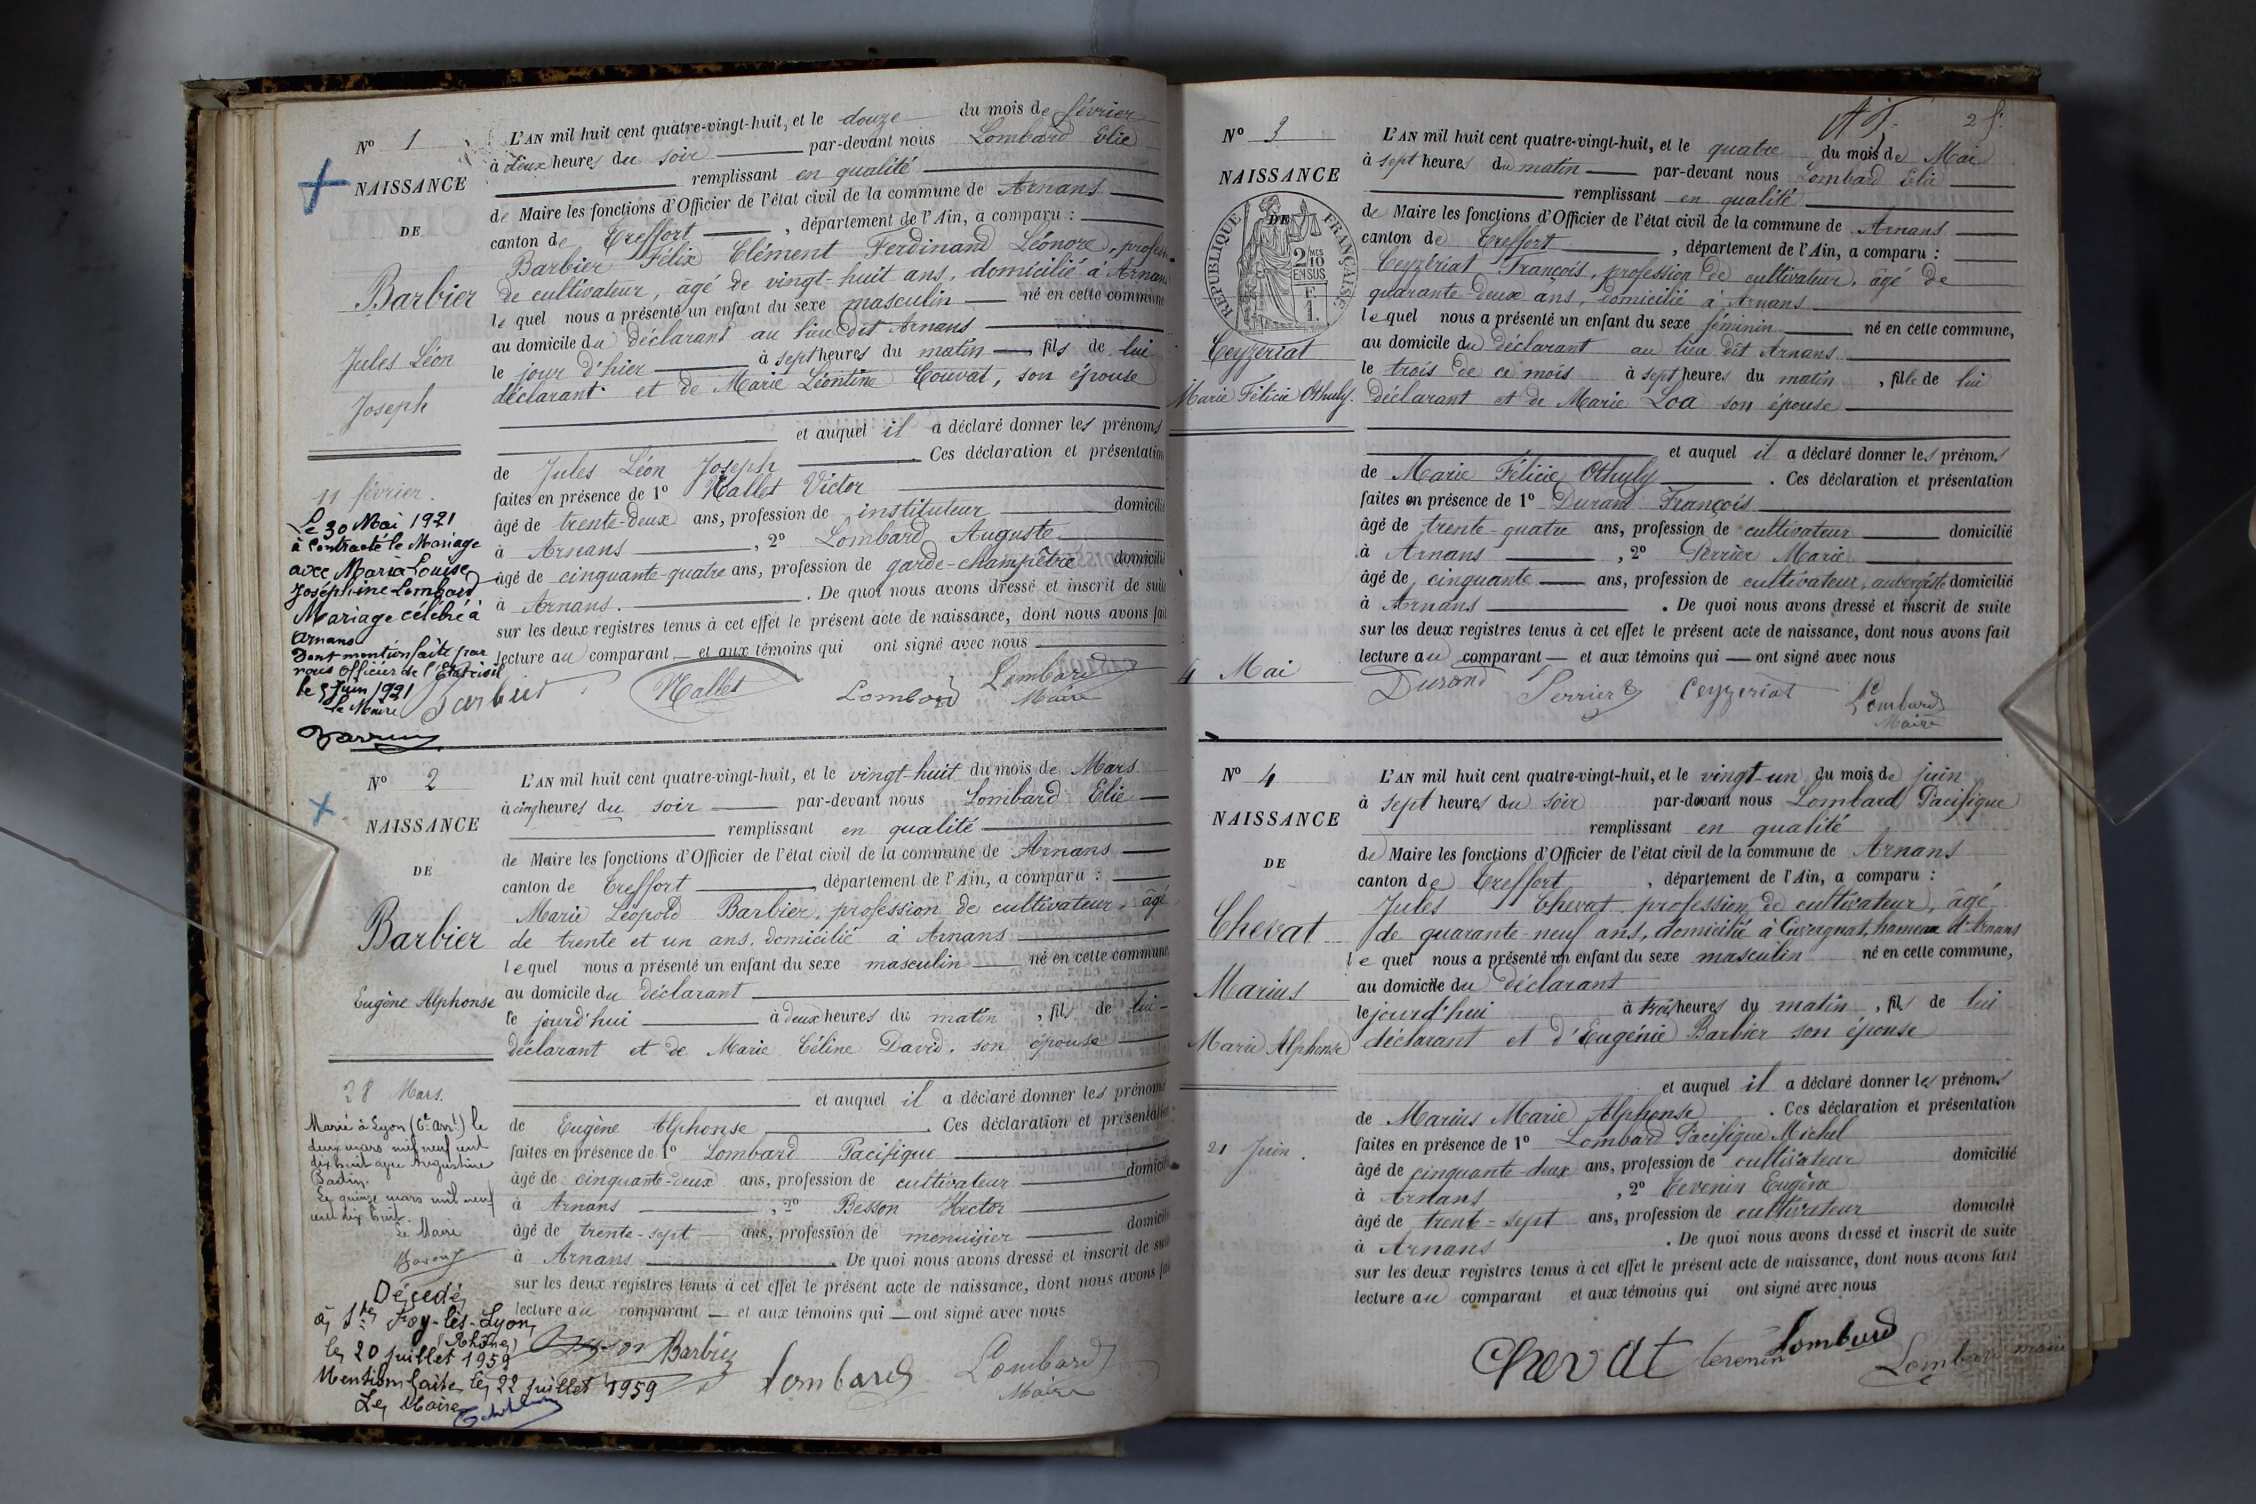 N° 1
NAISSANCE
DE
Barbier
Jules Léon
Joseph
11 février.
Le 30 Mai 1921
à contracté le Mariage
avec Maria Louise
Joséphine Lombard
Mariage célébré à
Arnans
Dont mention faite par
nous officier de l'état civil
le 5 Juin 1921
le Maire
L'AN mil huit cent quatre-vingt-huit, et le douze du mois de février
à deux heures du soir par-devant nous Lombard Elie
remplissant en qualité
de Maire les fonctions d'Officier de l'état civil de la commune de Arnans
canton de Treffort, département de l'Ain, a comparu :
Barbier Félix Clément Ferdinand Léonore, profession
de cultivateur, âgé de vingt-huit ans, domicilié à Arnans
lequel nous a présenté un enfant du sexe masculin né en cette commune
au domicile du déclarant au lieu dit Arnans
le jour d'hier à sept heures du matin, fils de lui
déclarant et de Marie Léontine Couvat, son épouse
et auquel il a déclaré donner les prénoms
de Jules Léon Joseph. Ces déclaration et présentation
faites en présence de 1° Mallet Victor
âgé de trente-deux ans, profession de instituteur domicilié
à Arnans, 2° Lombard Auguste
âgé de cinquante-quatre ans, profession de garde-champêtre domicilié
à Arnans. De quoi nous avons dressé et inscrit de suite
sur les deux registres tenus à cet effet le présent acte de naissance, dont nous avons fait
lecture au comparant et aux témoins qui ont signé avec nous
Barbier Mallet Lombard Lombard
Maire
N° 2
NAISSANCE
DE
Barbier
Eugène Alphonse
28 Mars.
Marié à Lyon (6e arrt) le
deux mars mil neuf cent
dix huit avec Augustine
Badin.
Le quinze mars mil neuf
cent dix huit.
Le Maire
Décédé
à Ste Foy-lès-Lyon
(Rhône)
le 20 juillet 1959
Mention faite le 22 juillet 1959
Le Maire
L'AN mil huit cent quatre-vingt-huit, et le vingt-huit du mois de Mars
à cinq heures du soir par-devant nous Lombard Elie
remplissant en qualité
de Maire les fonctions d'Officier de l'état civil de la commune de Arnans
canton de Treffort, département de l'Ain, a comparu :
Marie Léopold Barbier, profession de cultivateur, âgé
de trente et un ans, domicilié à Arnans
lequel nous a présenté un enfant du sexe masculin né en cette commune,
au domicile du déclarant
le jourd'hui à deux heures du matin, fils de lui
déclarant et de Marie Céline David, son épouse
et auquel il a déclaré donner les prénoms
de Eugène Alphonse. Ces déclaration et présentation
faites en présence de 1° Lombard Pacifique
âgé de cinquante-deux ans, profession de cultivateur domicilié
à Arnans, 2° Besson Hector
âgé de trente-sept ans, profession de menuisier domicilié
à Arnans. De quoi nous avons dressé et inscrit de suite
sur les deux registres tenus à cet effet le présent acte de naissance, dont nous avons fait
lecture au comparant et aux témoins qui ont signé avec nous
Besson Barbier Lombard Lombard
Maire
2 f.
N° 3
NAISSANCE
DE
REPUBLIQUE FRANÇAISE
2 MES 10
EN SUS
1 F.
Ceyzériat
Marie Félicie Othuly.
4 Mai
L'AN mil huit cent quatre-vingt-huit, et le quatre du mois de Mai
à sept heures du matin par-devant nous Lombard Elie
remplissant en qualité
de Maire les fonctions d'Officier de l'état civil de la commune de Arnans
canton de Treffort, département de l'Ain, a comparu :
Ceyzériat François, profession de cultivateur, âgé de
quarante-deux ans, domicilié à Arnans
lequel nous a présenté un enfant du sexe féminin né en cette commune,
au domicile du déclarant au lieu dit Arnans
le trois de ce mois à sept heures du matin, fille de lui
déclarant et de Marie Loa son épouse
et auquel il a déclaré donner les prénoms
de Marie Félicie Othuly. Ces déclaration et présentation
faites en présence de 1° Durand François
âgé de trente-quatre ans, profession de cultivateur domicilié
à Arnans, 2° Perrier Marie
âgé de cinquante ans, profession de cultivateur, aubergiste domicilié
à Arnans. De quoi nous avons dressé et inscrit de suite
sur les deux registres tenus à cet effet le présent acte de naissance, dont nous avons fait
lecture au comparant et aux témoins qui ont signé avec nous
Durand Perrier Ceyzeriat Lombard
Maire
N° 4
NAISSANCE
DE
Chevat
Marius
Marie Alphonse
21 Juin.
L'AN mil huit cent quatre-vingt-huit, et le vingt-un du mois de juin
à sept heures du soir par-devant nous Lombard Pacifique
remplissant en qualité
de Maire les fonctions d'Officier de l'état civil de la commune de Arnans
canton de Treffort, département de l'Ain, a comparu :
Jules Chevat, profession de cultivateur, âgé
de quarante-neuf ans, domicilié à hameau d'Arnans
lequel nous a présenté un enfant du sexe masculin né en cette commune,
au domicile du déclarant
le jourd'hui à trois heures du matin, fils de lui
déclarant et d'Eugénie Barbier son épouse
et auquel il a déclaré donner les prénoms
de Marius Marie Alphonse. Ces déclaration et présentation
faites en présence de 1° Lombard Pacifique Michel
âgé de cinquante-deux ans, profession de cultivateur domicilié
à Arnans, 2° Tevenin Eugène
âgé de trente-sept ans, profession de cultivateur domicilié
à Arnans. De quoi nous avons dressé et inscrit de suite
sur les deux registres tenus à cet effet le présent acte de naissance, dont nous avons fait
lecture au comparant et aux témoins qui ont signé avec nous
Chevat tevenin Lombard Lombard maire